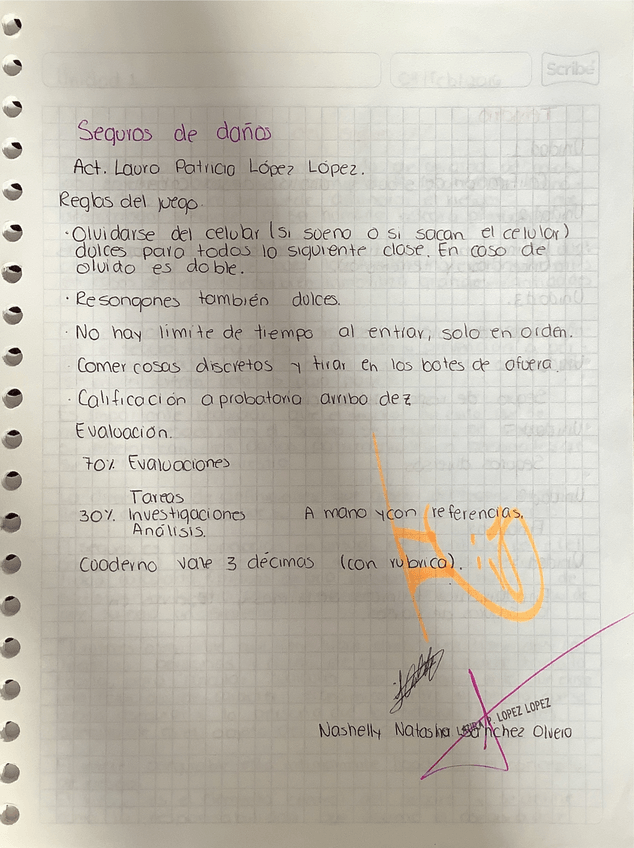 Scribé
Seguros de daños
Act. Lauro Patricio López López.
Reglas del juego.
· Olvidarse del celular (si sueno o si sacan el celular)
dulces para todos lo siguiente clase. En caso de
olvido es doble.
· Resongones también dulces.
· No hay límite de tiempo al entrar, solo en orden.
· Comer cosas discretos y tirar en los botes de afuera.
· Calificación aprobatoria arriba de 7
Evaluación.
70% Evaluaciones
Tareas
30% Investigaciones A mano y con referencias.
Análisis.
Cuaderno vale 3 décimas (con rubrica).
P. LOPEZ LOPEZ
Nashelly Natasha Sánchez Olvera